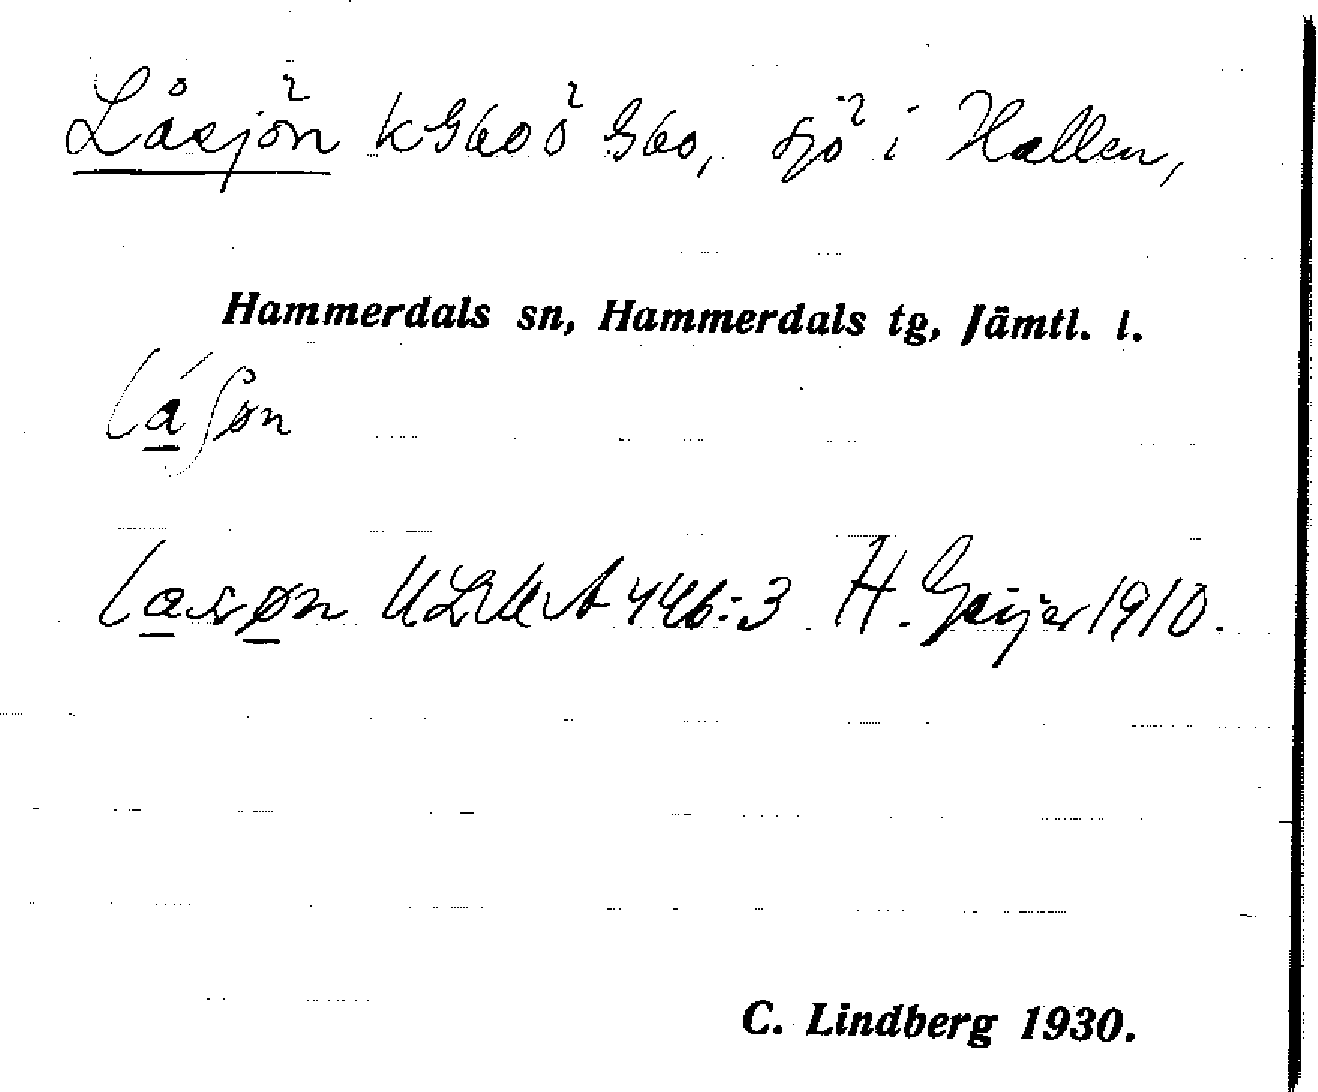 Låsjön k G60 ö G60, sjö i Hallen,
Hammerdals sn, Hammerdals tg, Jämtl. l.
lá̱ʃøn
la̱sø̱n ULMA 446:3 H. Geijer 1910.
C. Lindberg 1930.